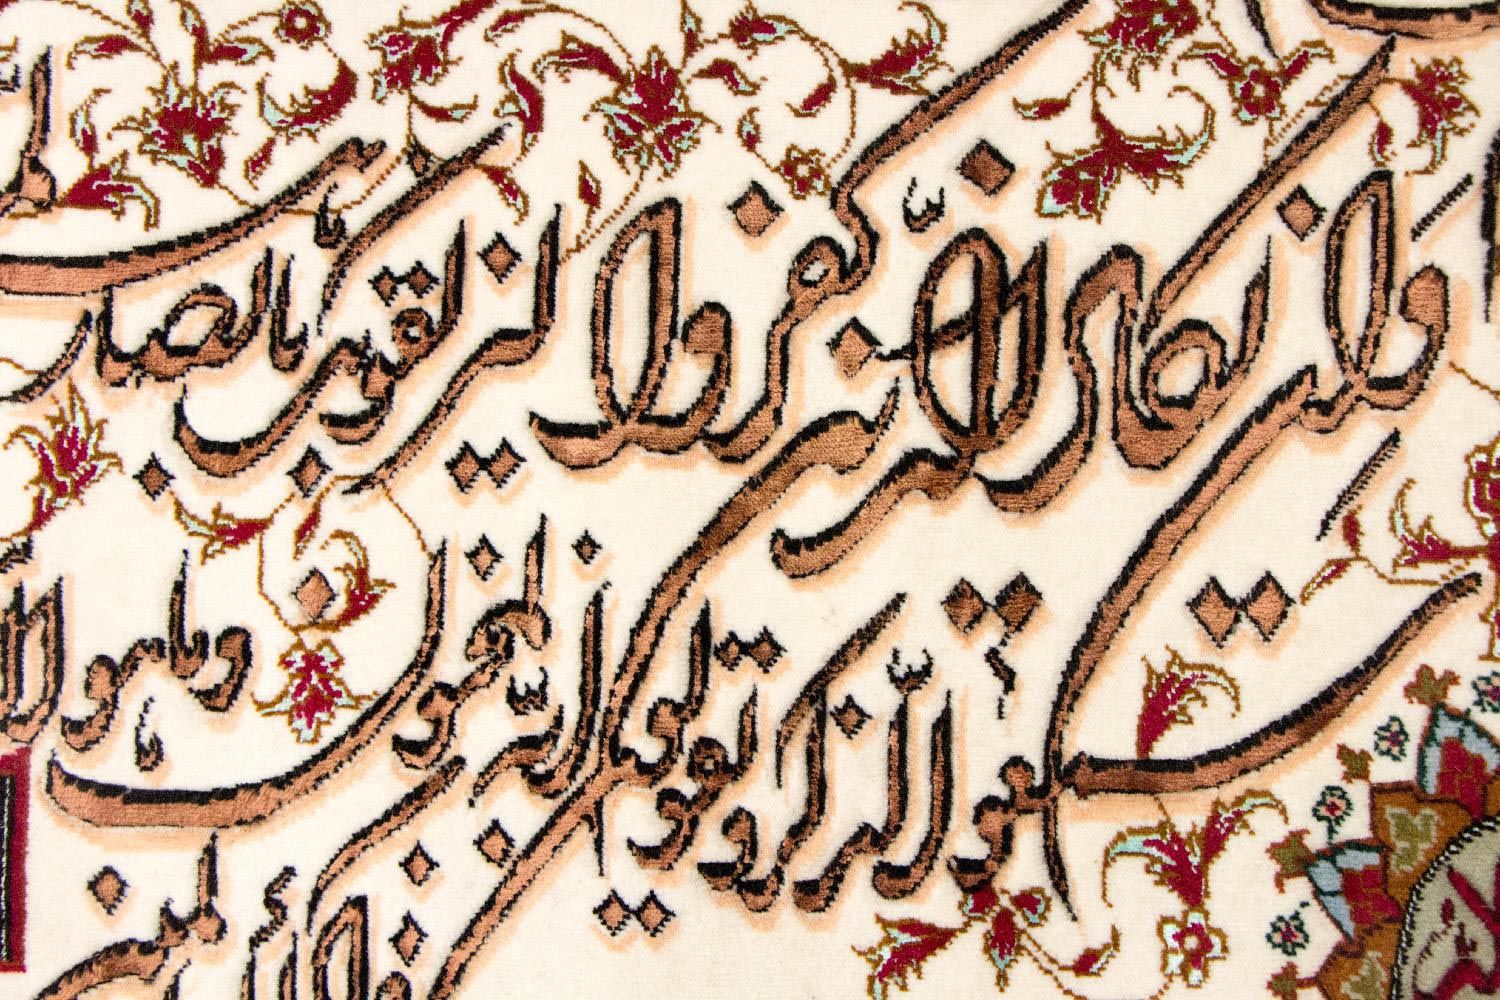 وان یکاد الذین کفروا لیزلقونک بابصارهم
لما سمعوا الذکر و یقولون انه لمجنون وما هو الا